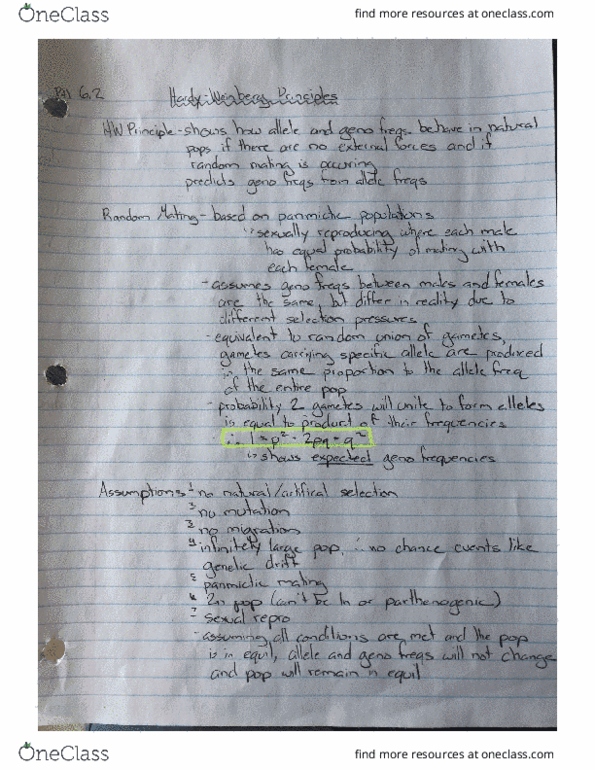 OneClass
find more resources at oneclass.com
6.2
Hardy-Weinberg Principles
HW Principle - shows how allele and geno freqs behave in natural
pops if there are no external forces and if
random mating is occuring
predicts geno freqs from allele freqs
Random Mating - based on panmictic populations
↳ sexually reproducing where each male
has equal probability of mating with
each female
- assumes geno freqs between males and females
are the same, but differ in reality due to
different selection pressures
- equivalent to random union of gametes,
gametes carrying specific allele are produced
in the same proportion to the allele freq
of the entire pop
- probability 2 gametes will unite to form alleles
is equal to product of their frequencies
∴ 1 = p² + 2pq + q²
↳ shows expected geno frequencies
Assumptions - 1 no natural/artifical selection
2 no mutation
3 no migration
4 infinitely large pop, ∴ no chance events like
genetic drift
5 panmictic mating
6 2n pop (can't be 1n or parthenogenic)
7 sexual repro
- assuming all conditions are met and the pop
is in equil, allele and geno freqs will not change
and pop will remain in equil
OneClass
find more resources at oneclass.com